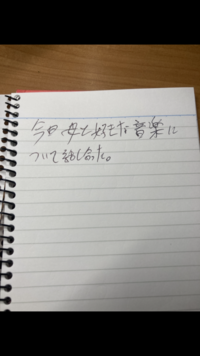 今日母と好きな音楽に
ついて話し合った。